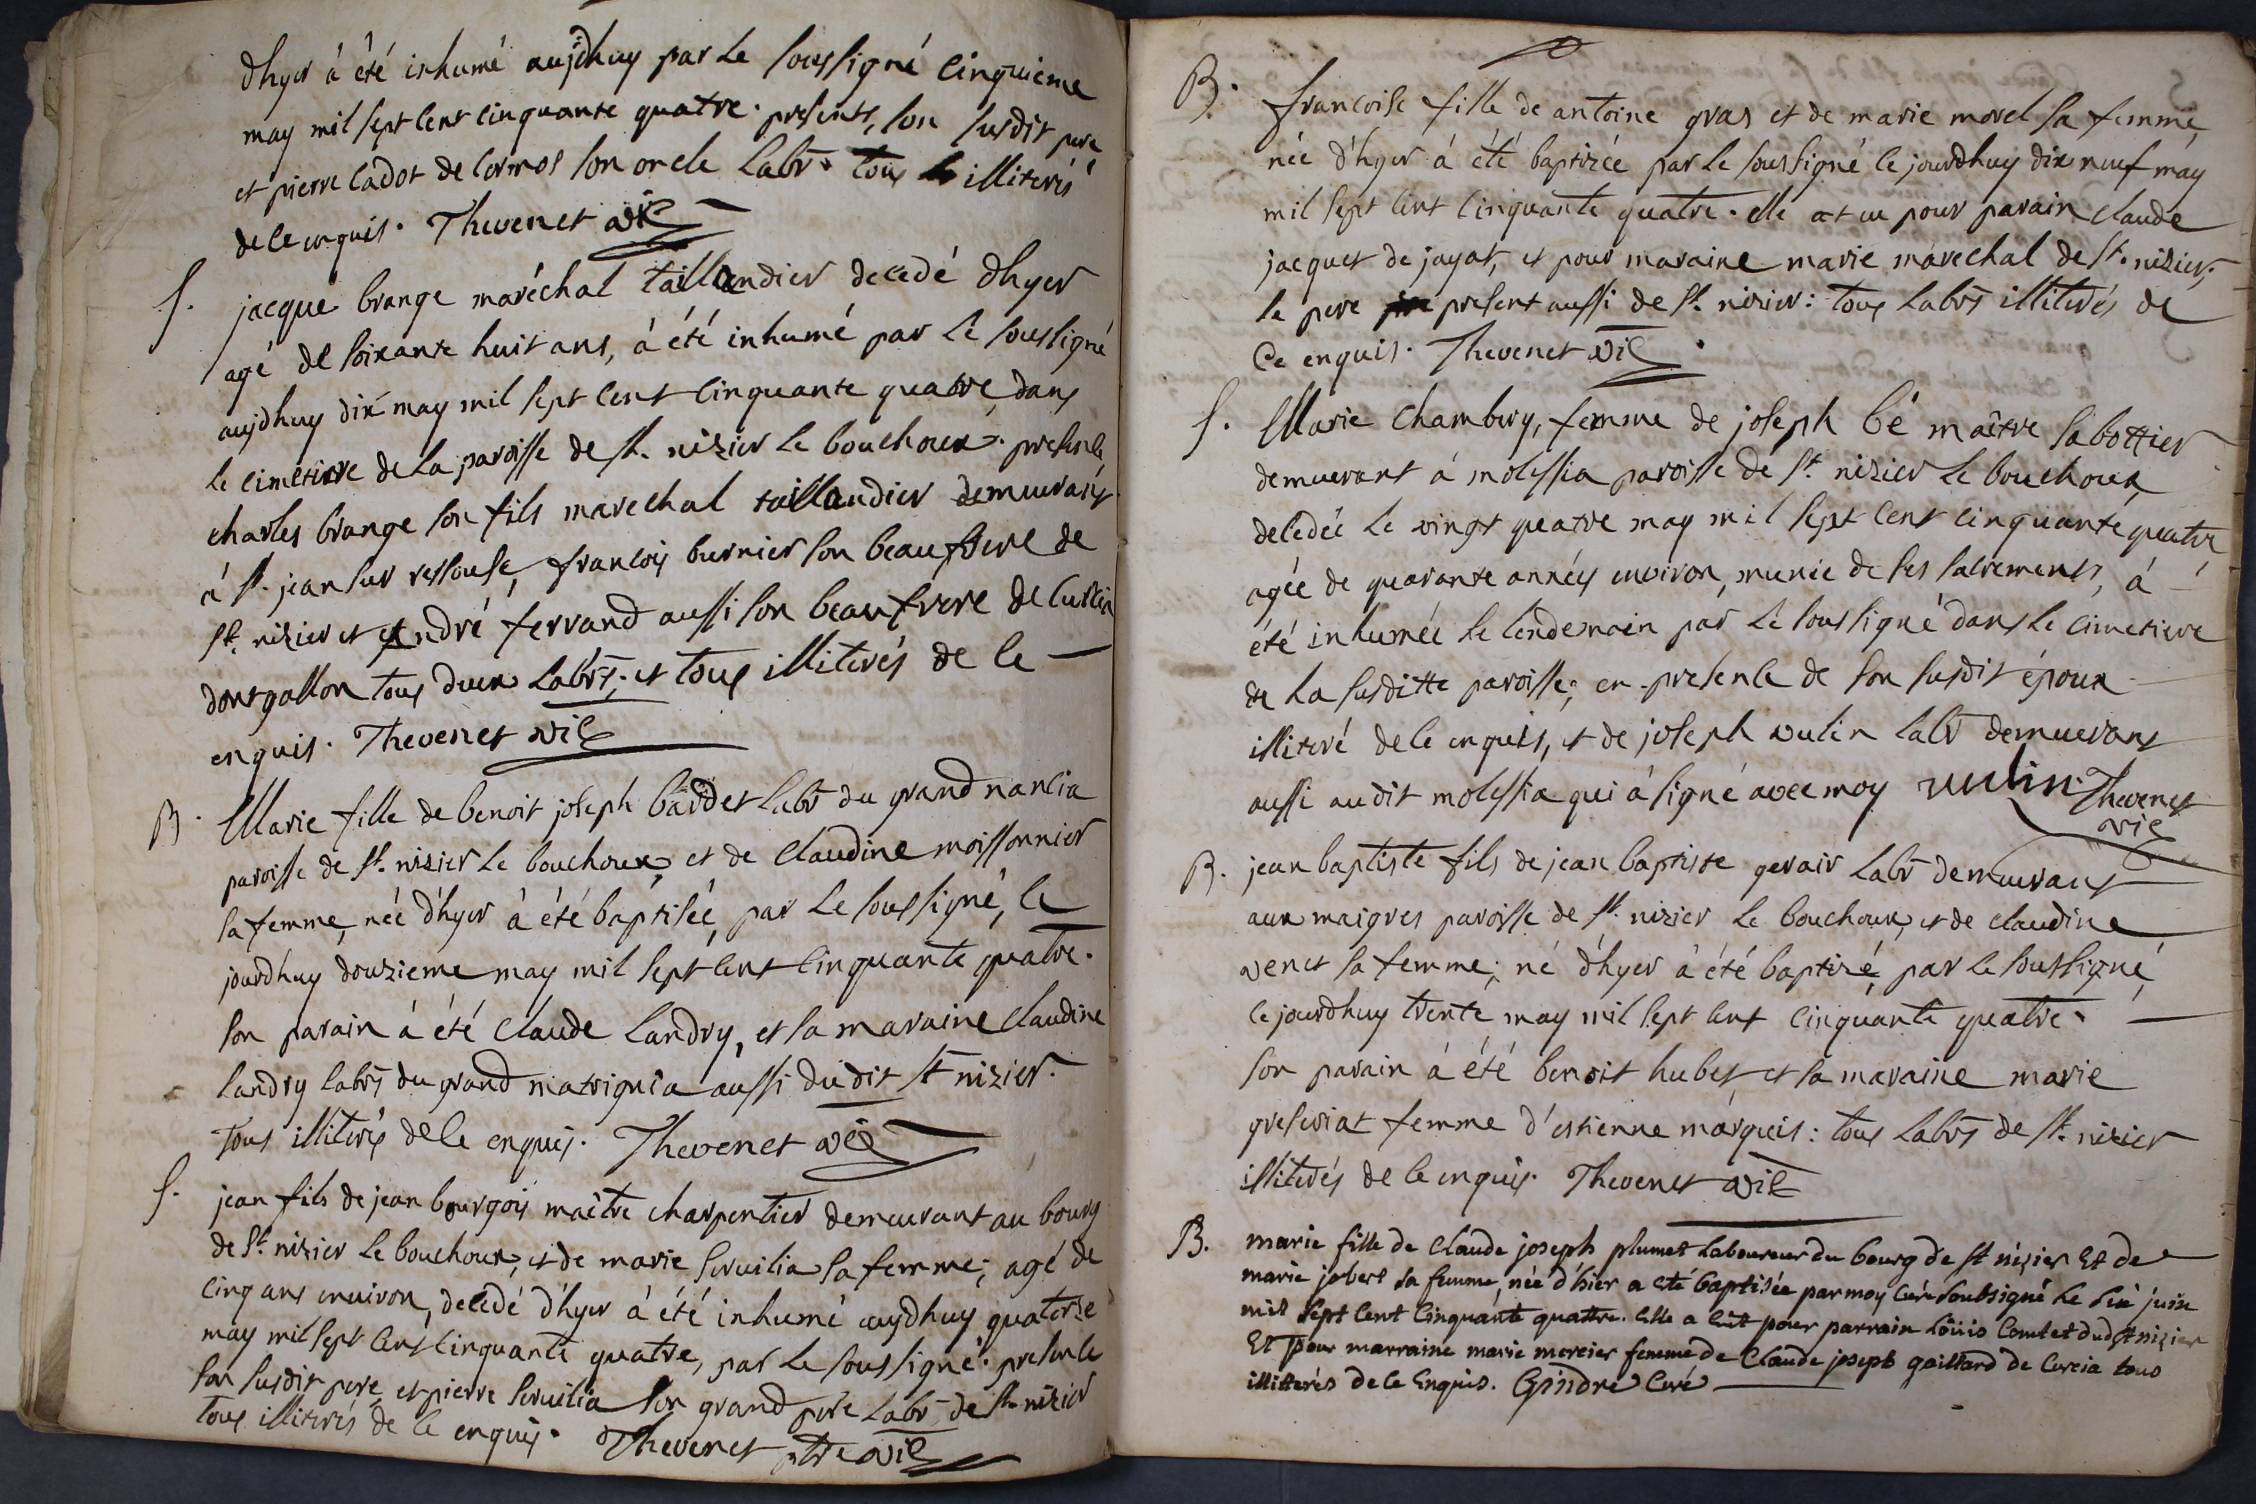 d'hyer à été inhumé aujdhuy par le soussigné cinquieme
may mil sept cent cinquante quatre. presents, son susdit pere
et pierre cadot de cormos son oncle labr. tous illiterés
de ce enquis. Thevenet vic
S. jacque brange maréchal taillandier decedé d'hyer
agé de soixante huit ans, à été inhumé par le soussigné
aujdhuy dix may mil sept cent cinquante quatre, dans
le cimetiere de la paroisse de st. nizier le bouchoux. presents
charles brange son fils marechal taillandier demeurant
à st. jean sur ressouse, francois burnier son beaufrere de
st. nizier et andré ferrand aussi son beaufrere de
tous deux labrs, et tous illiterés de ce
enquis. Thevenet vic
B. Marie fille de benoit joseph bardet labr du grand nancia
paroisse de st. nizier le bouchoux, et de claudine moissonnier
sa femme, née d'hyer à été baptisée, par le soussigné, ce
jourdhuy douzieme may mil sept cent cinquante quatre.
son parain à été claude landry, et sa maraine claudine
landry labrs du grand matrignia aussi dudit st nizier.
tous illiterés de ce enquis. Thevenet vic
S. jean fils de jean bourgois maître charpentier demeurant au bourg
de st. nizier le bouchoux, et de marie servilia sa femme; agé de
cinq ans environ, decedé d'hyer à été inhumé aujdhuy quatorze
may mil sept cent cinquante quatre, par le soussigné. presents
son susdit pere, et pierre servilia son grand pere labr de st. nizier
tous illiterés de ce enquis. Thevenet ptre vic
B. francoise fille de antoine gras et de marie morel sa femme,
née d'hyer à été baptizée par le soussigné ce jourdhuy dix neuf may
mil sept cent cinquante quatre. elle at eu pour parain claude
jacquet de jayat, et pour maraine marie marechal de st. nizier;
le pere present aussi de st. nizier: tous labrs illiterés de
ce enquis. Thevenet vic.
S. Marie chambery, femme de joseph bé maître sabottier
demeurant à molessia paroisse de st. nizier le bouchoux,
decedée le vingt quatre may mil sept cent cinquante quatre
agée de quarante années environ, munie de ses sacrements, à
été inhumée le lendemain par le soussigné dans le cimetiere
de la susditte paroisse; en presence de son susdit époux
illiteré de ce enquis, et de joseph vulin labr demeurant
aussi audit molessia qui à signé avec moy vulin Thevenet
vic
B. jean baptiste fils de jean baptiste gerair labr demeurant
aux maigres paroisse de st. nizier le bouchoux, et de claudine
venet sa femme; né d'hyer à été baptizé, par le soussigné,
ce jourdhuy trente may mil sept cent cinquante quatre.
son parain à été benoit hubet et sa maraine marie
greseriat femme d'estienne marquis: tous labrs de st. nizier
illiterés de ce enquis. Thevenet vic
B. marie fille de claude joseph plumet laboureur du bourg de st nizier Et de
marie jobert sa femme, née d'hier a eté baptisée par moy curé soubsigné le six juin
mil sept cent cinquante quattre. elle a eüt pour parrain loüis comtet dud st nizier
Et pour marraine marie mercier femme de claude joseph gaillard de curcia tous
illitterés de ce Enquis. Gindre Curé